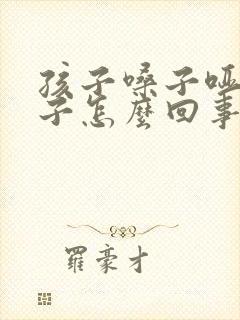 孩子嗓子哑
子怎麽回事
羅豪才